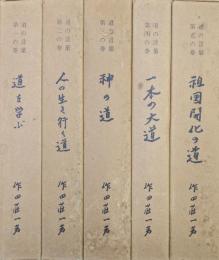 道の言葉
第一の巻
道を学ぶ
作田荘一著
道の言葉
第二の巻
人の生き行く道
作田荘一著
道の言葉
第三の巻
神の道
作田荘一著
道の言葉
第四の巻
一本の大道
作田荘一著
道の言葉
第五の巻
祖国開化の道
作田荘一著